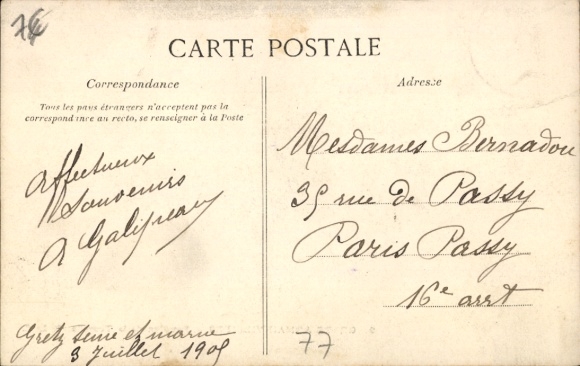 CARTE POSTALE
Correspondance
Tous les pays étrangers n'acceptent pas la
correspondance au recto, se renseigner à la Poste
Affectueux
Souvenirs
A Galipeau
Gretz Seine et marne
3 Juillet 190
Adresse
Mesdames Bernadou
35 rue de Passy
Paris Passy
16e arrt
77